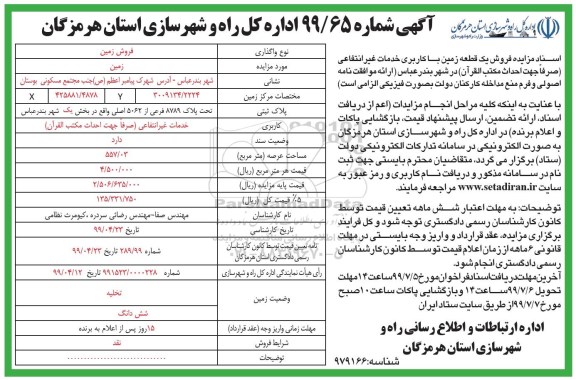 اداره کل راه و شهرسازی استان هرمزگان
آگهی شماره ۹۹/۶۵ اداره کل راه و شهرسازی استان هرمزگان
اسناد مزایده فروش یک قطعه زمین با کاربری خدمات غیرانتفاعی
(صرفاً جهت احداث مکتب القرآن) در شهر بندرعباس (ارائه موافقت نامه
اصولی و فرم منع مداخله کارکنان دولت بصورت فیزیکی الزامی است)
با عنایت به اینکه کلیه مراحل انجام مزایدات (اعم از دریافت
اسناد، ارائه تضمین، ارسال پیشنهاد قیمت، بازگشایی پاکات
و اعلام برنده) در اداره کل راه و شهرسازی استان هرمزگان
به صورت الکترونیکی در سامانه تدارکات الکترونیکی دولت
(ستاد) برگزار می گردد، متقاضیان محترم بایستی جهت ثبت
نام در سامانه مذکور و دریافت نام کاربری و رمز عبور به
سایت www.setadiran.ir مراجعه فرمایند.
توضیحات: به مهلت اعتبار شش ماهه تعیین قیمت توسط
کانون کارشناسان رسمی دادگستری توجه شود و کل فرآیند
برگزاری مزایده، عقد قرارداد و واریز وجه بایستی در مهلت
قانونی ۶ ماهه از زمان اعلام قیمت توسط کانون کارشناسان
رسمی دادگستری انجام شود.
آخرین مهلت دریافت اسناد فراخوان مورخ ۹۹/۷/۵ ساعت ۱۴ مهلت
تحویل ۹۹/۷/۶ ساعت ۱۴ و بازگشایی پاکات ساعت ۱۰ صبح
مورخ ۹۹/۷/۷ از طریق سایت ستاد ایران
اداره ارتباطات و اطلاع رسانی راه و
شهرسازی استان هرمزگان
شناسه: ۹۷۹۱۶۶
نوع واگذاری فروش زمین
مورد مزایده زمین
نشانی شهر بندرعباس - آدرس شهرک پیامبر اعظم (ص) جنب مجتمع مسکونی بوستان
مختصات مرکز زمین ۳۰۰۹۱۳۴/۲۲۲۴ Y ۴۲۵۸۸۱/۴۸۷۸ X
پلاک ثبتی تحت پلاک ۸۷۸۹ فرعی از ۵۰۶۲ اصلی واقع در بخش یک شهر بندرعباس
کاربری خدمات غیرانتفاعی (صرفاً جهت احداث مکتب القرآن)
وضعیت سند دارد
مساحت عرصه (متر مربع) ۵۵۷/۰۳
قیمت هر متر مربع (ریال) ۴/۵۰۰/۰۰۰
قیمت پایه مزایده (ریال) ۲/۵۰۶/۶۳۵/۰۰۰
۵٪ قیمت کل (ریال) ۱۳۵/۳۳۱/۷۵۰
نام کارشناسان مهندس صفا-مهندس رضائی سردره-کیومرث نظامی
تاریخ کارشناسی ۹۹/۰۴/۲۳
نامه تعیین قیمت توسط کانون کارشناسان رسمی دادگستری استان هرمزگان شماره ۲۸۹/۹۹ تاریخ ۹۹/۰۴/۲۳
رأی هیأت نمایندگی اداره کل راه و شهرسازی شماره ۹۹۱۵۲۳/۰۰۰۰۲۲۸ تاریخ ۹۹/۰۴/۱۲
وضعیت زمین تخلیه
شش دانگ
مهلت زمانی واریز وجه (عقد قرارداد) ۱۵ روز پس از اعلام به برنده
شرایط فروش نقد
توضیحات